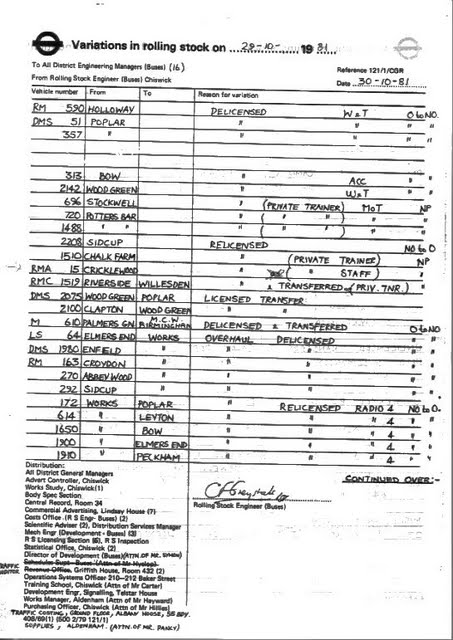 Variations in rolling stock on 29-10- 1981
To All District Engineering Managers (Buses) (16)
Reference 121/1/CGR
From Rolling Stock Engineer (Buses) Chiswick
Date 30-10-81
Vehicle number From To Reason for variation
RM 590 HOLLOWAY DELICENSED W&T O to NO.
DMS 51 POPLAR " " " "
357 " " " " "
313 BOW " ACC " "
2142 WOOD GREEN " W&T " "
696 STOCKWELL " (PRIVATE TRAINER) MOT NP
720 POTTERS BAR " ( " " ) " "
1488 " " " ( " " ) " "
2208 SIDCUP RELICENSED NO to O
1510 CHALK FARM " (PRIVATE TRAINER) NP
RMA 15 CRICKLEWOOD " ( " STAFF) "
RMC 1519 RIVERSIDE WILLESDEN " & TRANSFERRED (PRIV. TNR.) "
DMS 2075 WOOD GREEN POPLAR LICENSED TRANSFER
2100 CLAPTON WOOD GREEN " "
M 610 PALMERS GN. M.C.W. BIRMINGHAM DELICENSED & TRANSFERRED O to NO
LS 64 ELMERS END WORKS OVERHAUL DELICENSED " "
DMS 1980 ENFIELD " " " " "
RM 163 CROYDON " " " " "
270 ABBEY WOOD " " " " "
292 SIDCUP " " " " "
172 WORKS POPLAR " RELICENSED RADIO 4 NO to O.
614 " LEYTON " " " 4 " "
1650 " BOW " " " 4 " "
1900 " ELMERS END " " " 4 " "
1910 " PECKHAM " " " 4 " "
Distribution:
All District General Managers
Advert Controller, Chiswick
Works Study, Chiswick (1)
Body Spec Section
Central Record, Room 34
Commercial Advertising, Lindsay House (7)
Costs Office (R S Engr- Buses) (2)
Scientific Adviser (2), Distribution Services Manager
Mech Engr (Development - Buses) (3)
R S Licensing Section (6), R S Inspection
Statistical Office, Chiswick (2)
Director of Development (Buses) (ATTN. OF MR.
Schedules Supt - Buses (Attn of Mr Hyslop)
Revenue Office, Griffith House, Room 432 (2)
Operations Systems Officer 210-212 Baker Street
Training School, Chiswick (Attn of Mr Carter)
Development Engr, Signalling, Telstar House
Works Manager, Aldenham (Attn of Mr Hayward)
Purchasing Officer, Chiswick (Attn of Mr Hillies)
TRAFFIC COSTING, GROUND FLOOR, ALBANY HOUSE, 55 BDY.
408/69(1) (500 2/79 121/1)
SUPPLIES, ALDENHAM. (ATTN. OF MR. DANCY)
CONTINUED OVER:-
Rolling Stock Engineer (Buses)